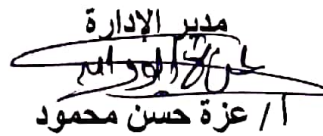 مدير الإدارة
أ/ عزة حسن محمود